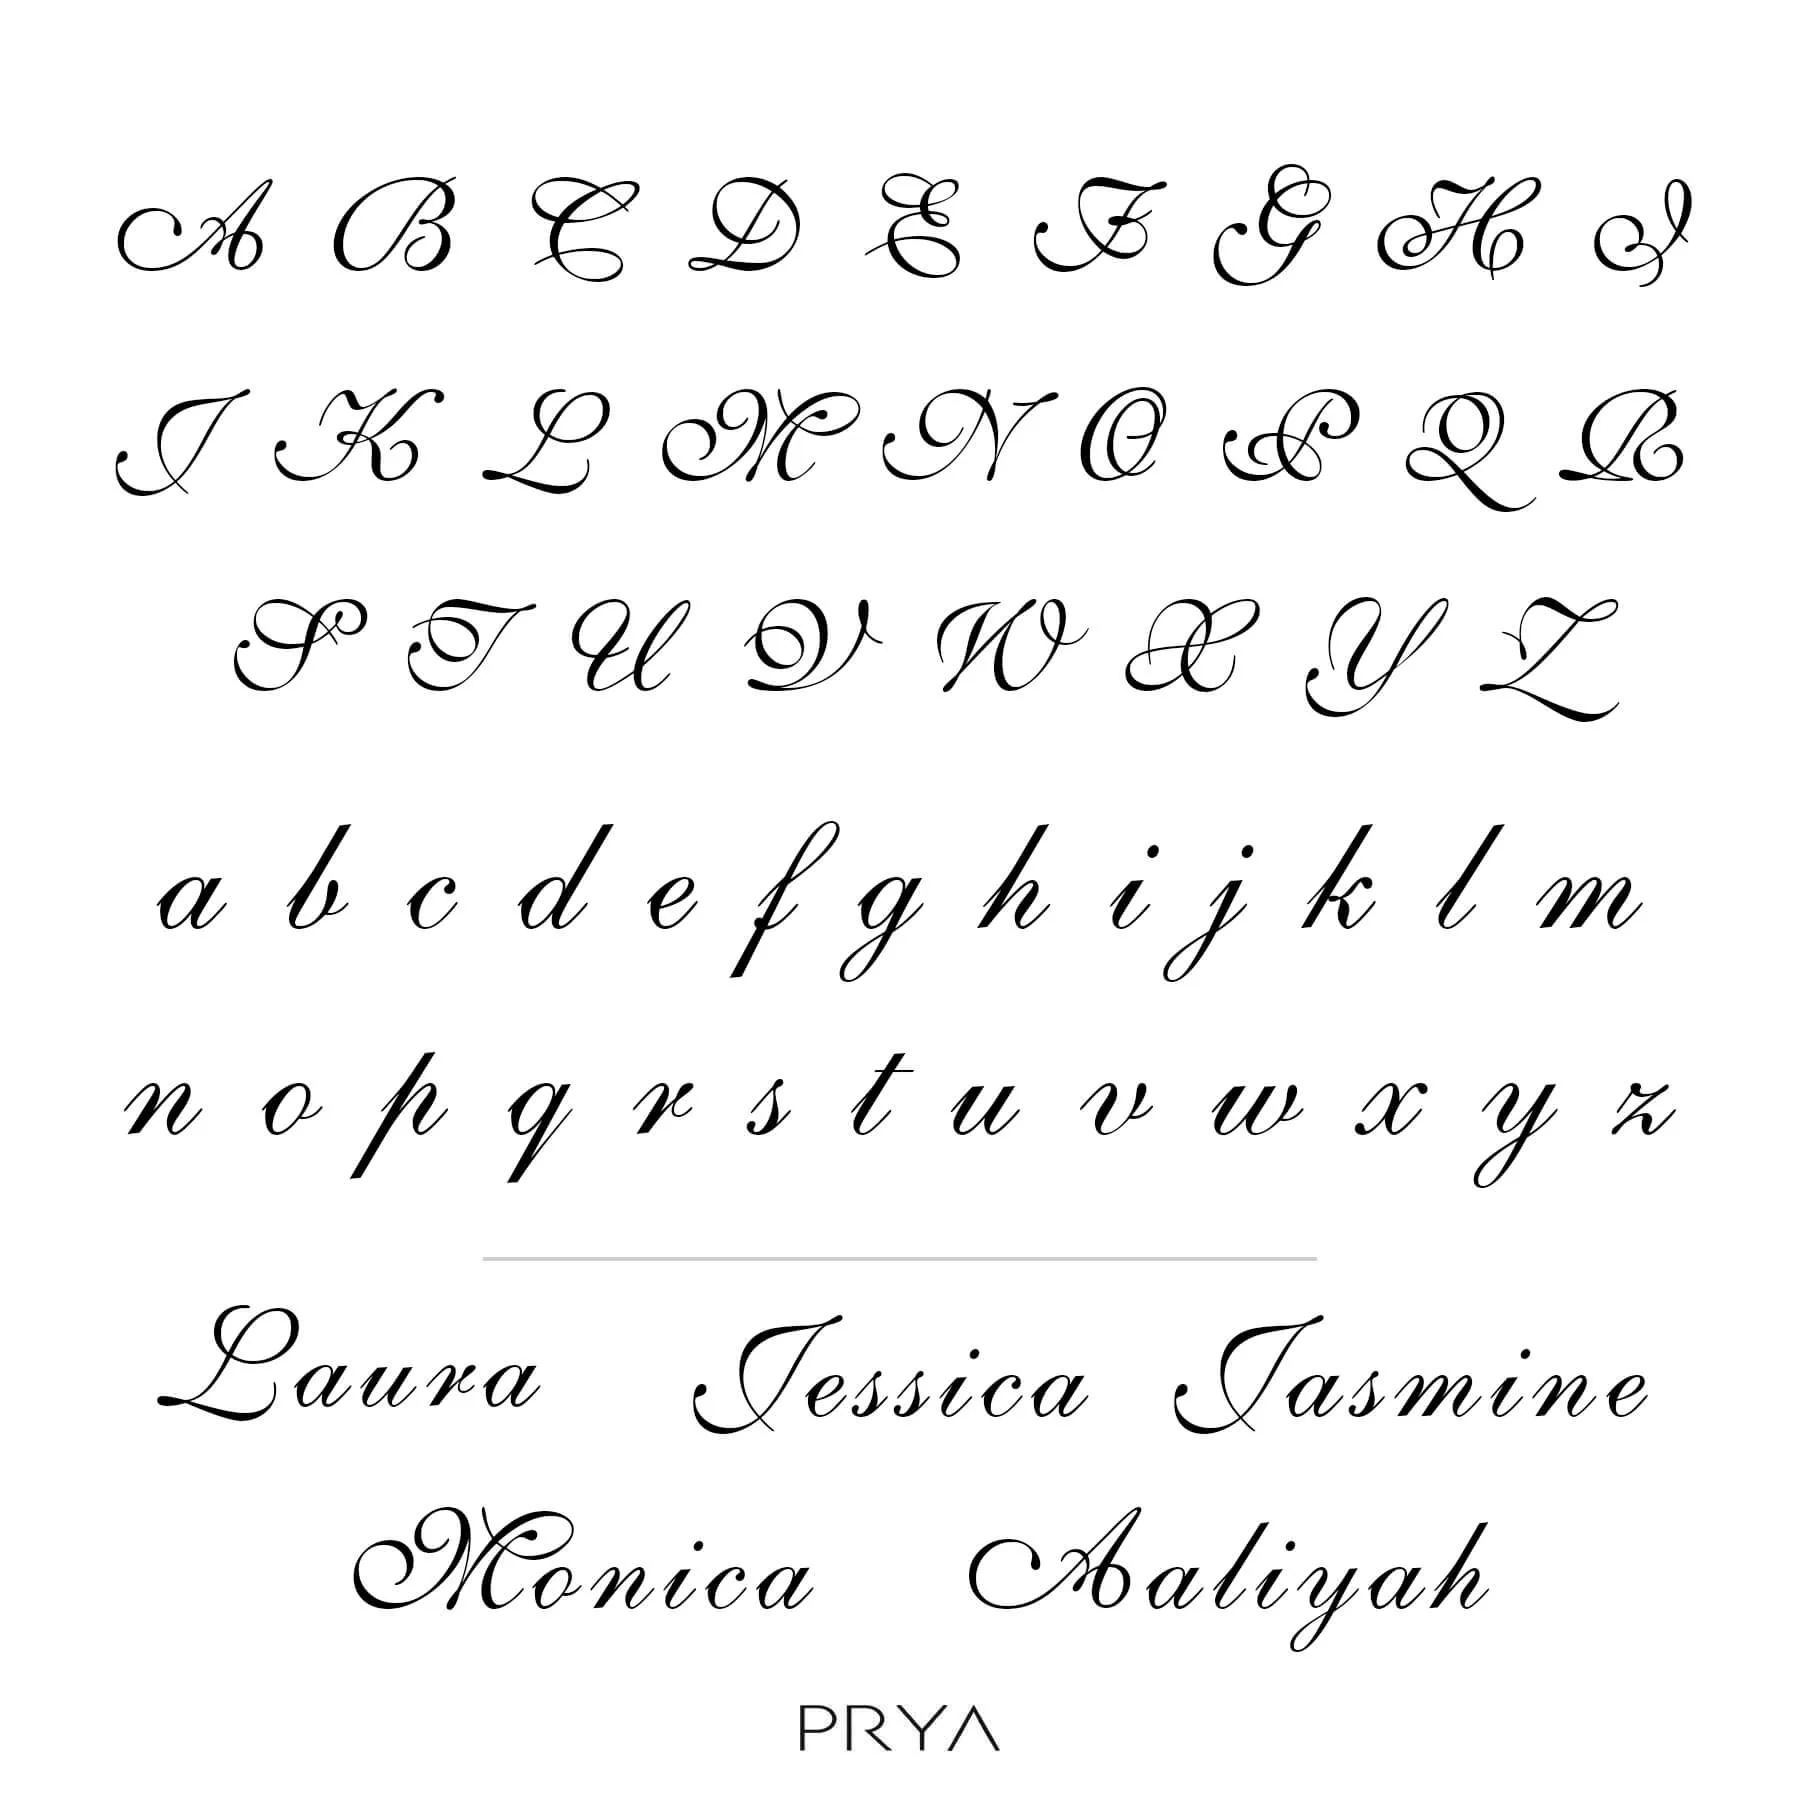 A B C D E F G H I
J K L M N O P Q R
S T U V W X Y Z
a b c d e f g h i j k l m
n o p q r s t u v w x y z
Laura Jessica Jasmine
Monica Aaliyah
PRYA